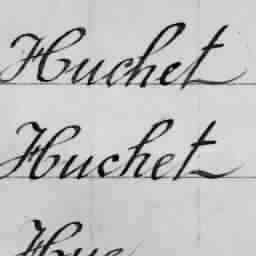 Huchet
Huchet
Huc